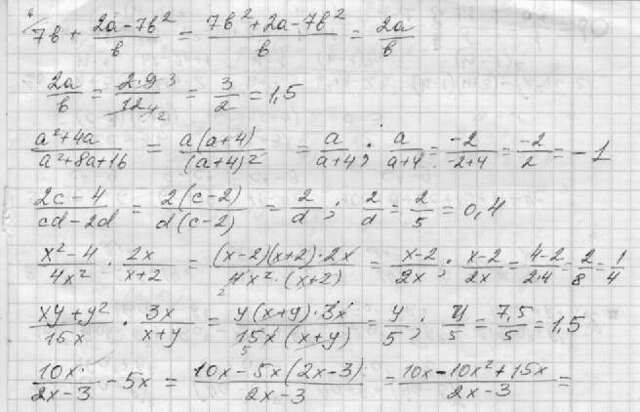 7b + (2a - 7b²)/b = (7b² + 2a - 7b²)/b = 2a/b
2a/b = (2·9 3)/(12 4 2) = 3/2 = 1,5
(a² + 4a)/(a² + 8a + 16) = a(a+4)/(a+4)² = a/(a+4); a/(a+4) = -2/(-2+4) = -2/2 = -1
(2c - 4)/(cd - 2d) = 2(c-2)/d(c-2) = 2/d; 2/d = 2/5 = 0,4
(x² - 4)/4x² · 2x/(x+2) = (x-2)(x+2)·2x/(4x²·(x+2)) 2 = (x-2)/2x; (x-2)/2x = (4-2)/(2·4) = 2/8 = 1/4
(xy + y²)/15x · 3x/(x+y) = y(x+y)·3x/(15x(x+y)) 5 = y/5; y/5 = 7,5/5 = 1,5
10x/(2x-3) - 5x = (10x - 5x(2x-3))/(2x-3) = (10x - 10x² + 15x)/(2x-3) =